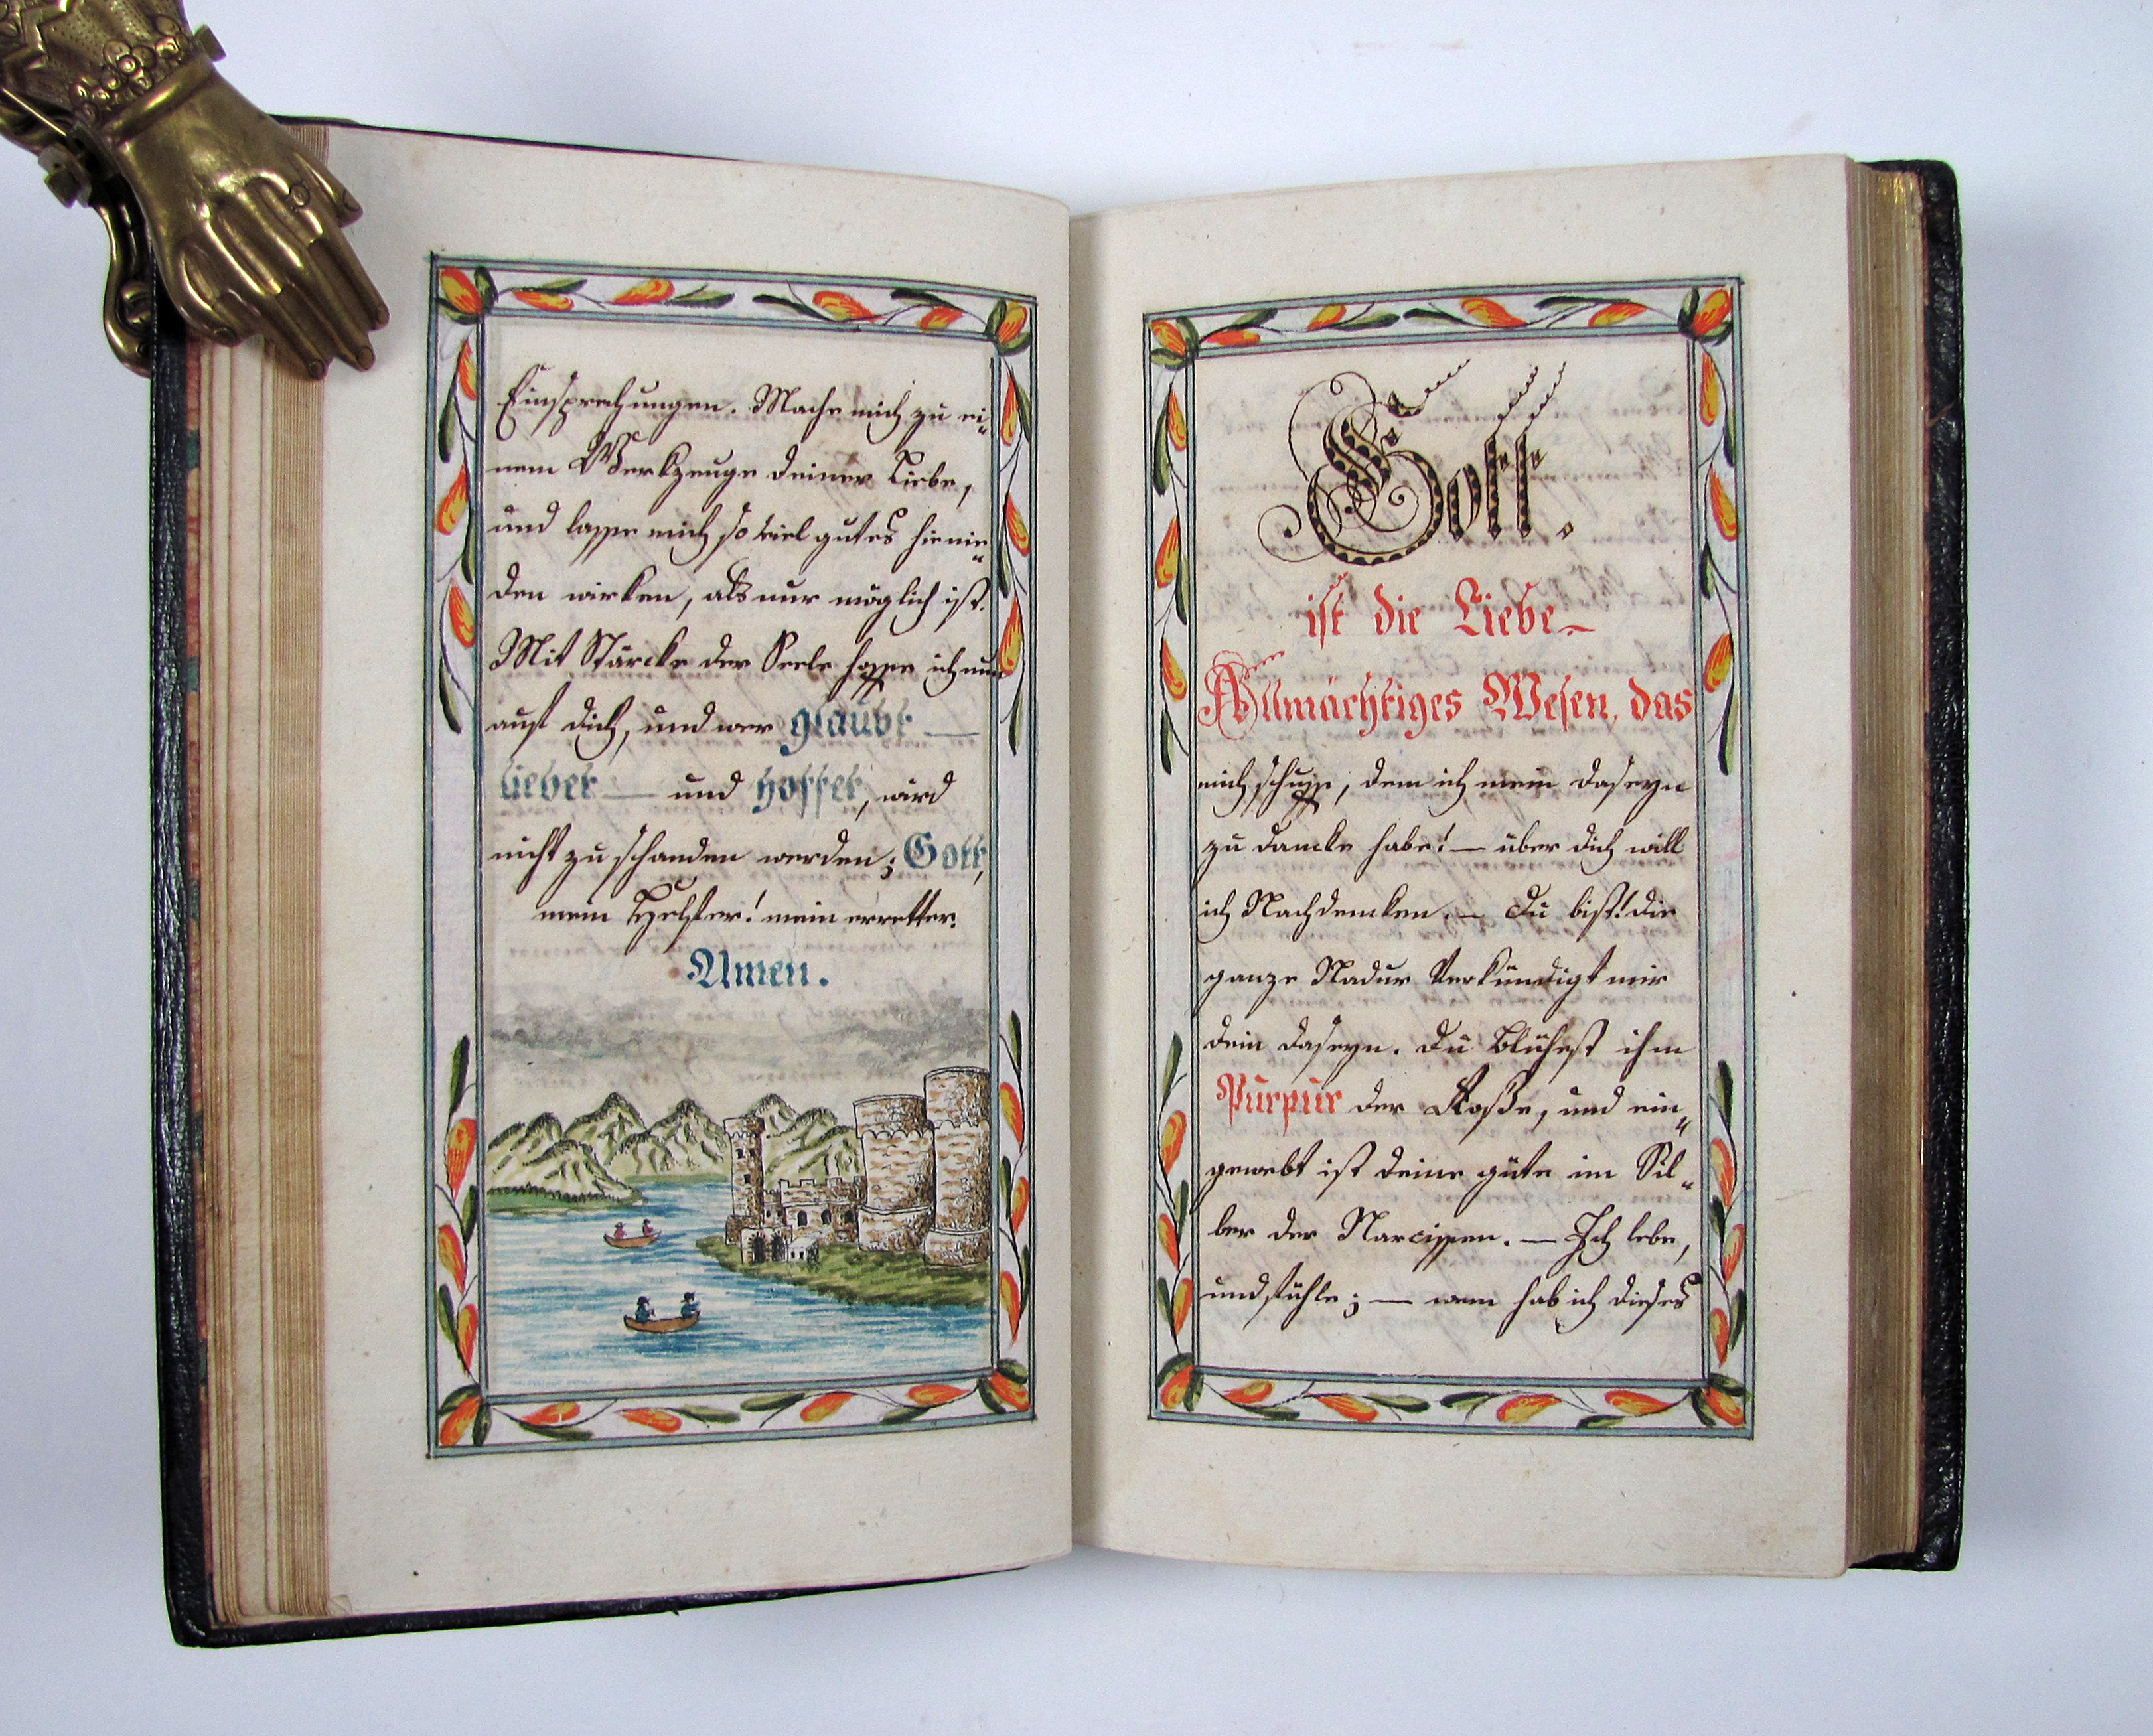 Einsprechungen. Mache mich zu ei„
nem Werkzeuge deiner Liebe,
und lasse mich so viel gutes hienie„
den wirken, als nur möglich ist.
Mit Stärcke der Seele hoffe ich nun
auf dich, und wer glaubt —
liebet — und hoffet, wird
nicht zu schanden werden; Gott,
mein Helfer! mein erretter.
Amen.
Gott.
ist die Liebe.
Allmächtiges Wesen, das
mich schuff, dem ich mein daseyn
zu dancke habe! — über dich will
ich Nachdencken. — du bist! die
ganze Nadur Verkündigt mir
dein daseyn. du Blühest ihm
Purpur der Roße, und ein„
gewebt ist deine güte im Sil„
ber der Narcissen. — Ich lebe,
und fühle; — wem hab ich dieses